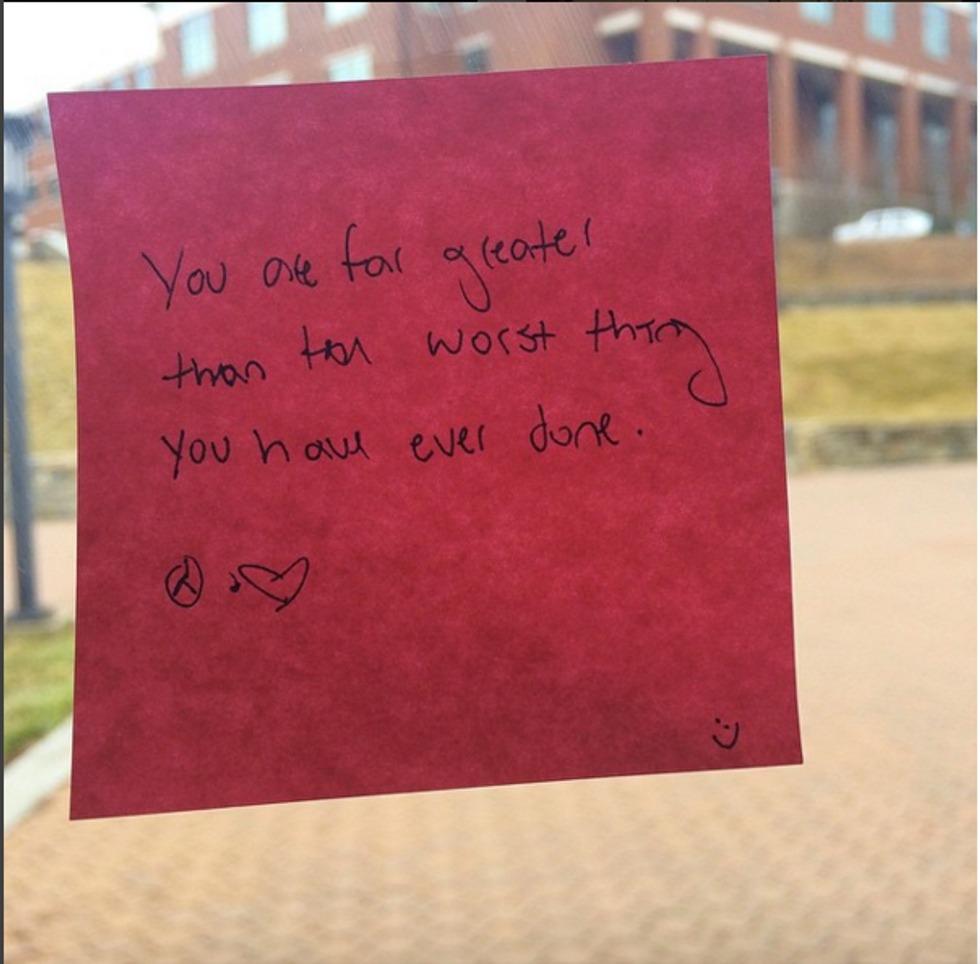 You are far greater
than the worst thing
you have ever done.